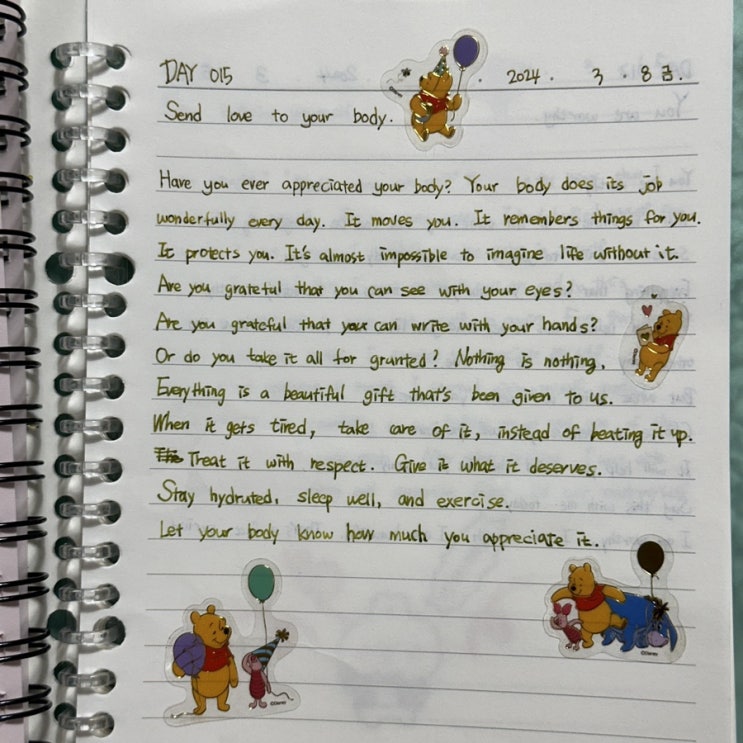 DAY 015 . 2024 . 3 . 8 금.
Send love to your body.
Have you ever appreciated your body? Your body does its job
wonderfully every day. It moves you. It remembers things for you.
It protects you. It's almost impossible to imagine life without it.
Are you grateful that you can see with your eyes?
Are you grateful that you can write with your hands?
Or do you take it all for granted? Nothing is nothing.
Everything is a beautiful gift that's been given to us.
When it gets tired, take care of it, instead of beating it up.
Treat it with respect. Give it what it deserves.
Stay hydrated, sleep well, and exercise.
Let your body know how much you appreciate it.
©Disney
©Disney